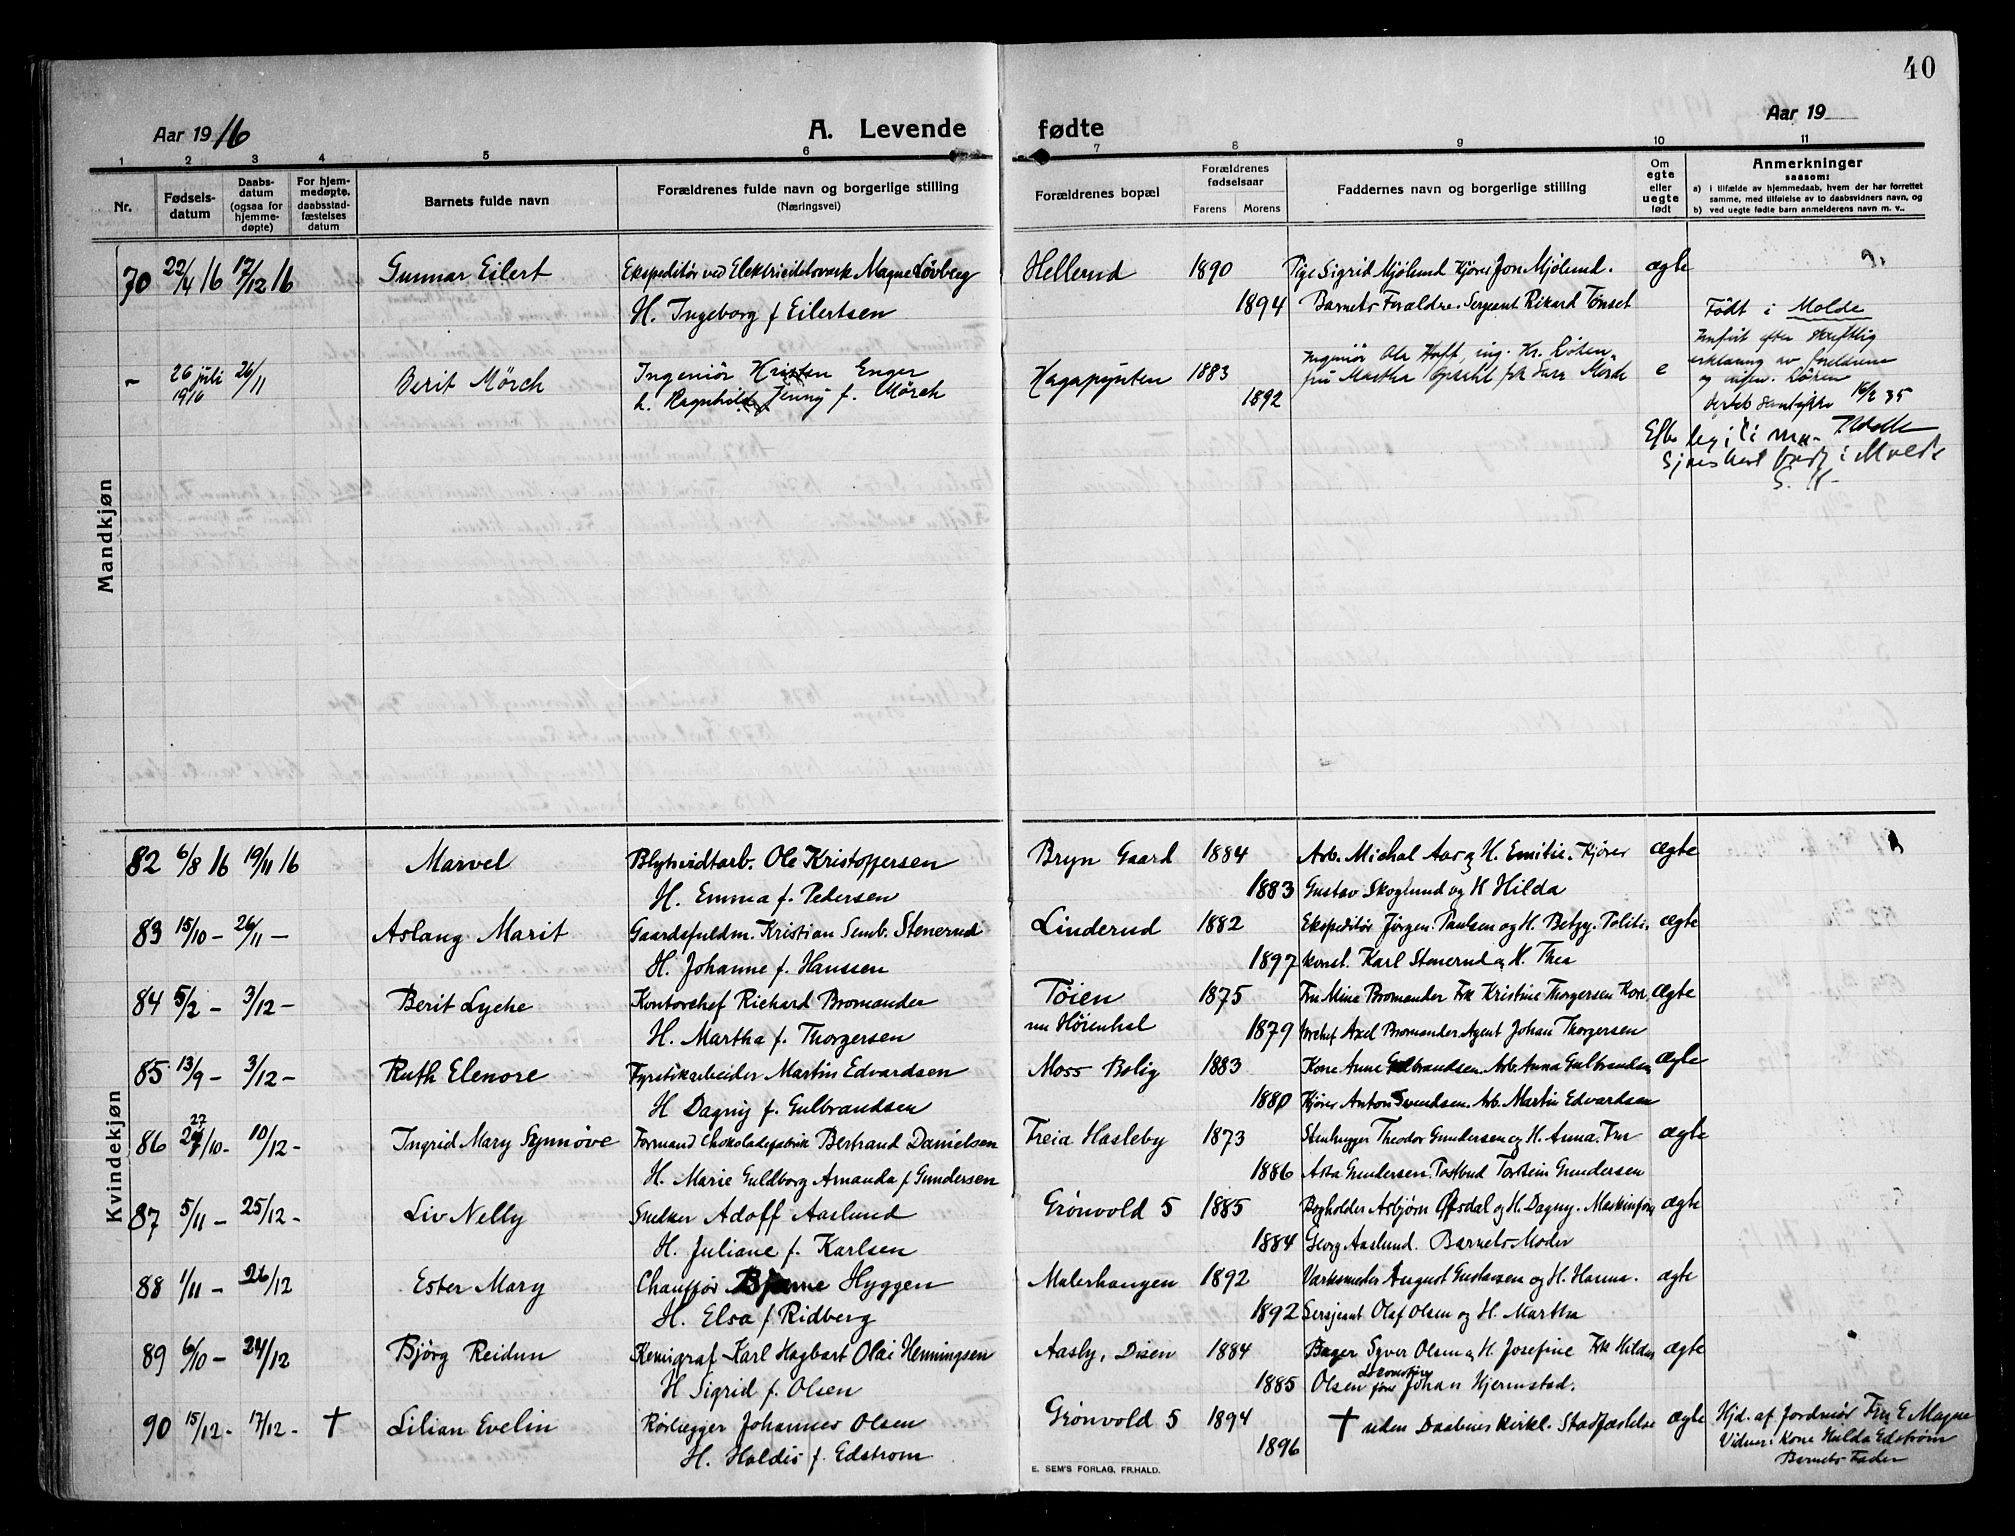 40
Aar 1916
A. Levende fødte
Aar 19
1 2 3 4 5 6 7 8 9 10 11
Nr.
Fødsels-
datum
Daabs-
datum
(ogsaa for
hjemme-
døpte)
For hjem-
medøpte,
daabsstad-
fæstelses
datum
Barnets fulde navn
Forældrenes fulde navn og borgerlige stilling
(Næringsvei)
Forældrenes bopæl
Forældrenes
fødselsaar
Farens Morens
Faddernes navn og borgerlige stilling
Om
egte
eller
uegte
født
Anmerkninger
saasom:
a) i tilfælde av hjemmedaab, hvem der har forrettet
samme, med tilføielse av to daabsvidners navn, og
b) ved uegte fødte barn anmelderens navn m. v..
Mandkjøn
70 22/4 16 17/12 16 Gunnar Eilert Ekspeditør ved Elektricitetsverk Magne Løvberg Hellerud 1890 Pige Sigrid Mjølund Kjører Jon Mjølund. ægte
H. Ingeborg f Eilertsen 1894 Barnets Forældre. Sergeant Rikard Tønset
Født i Molde
- 26 juli 26/11 Berit Mörch Ingeniör Kristen Enger Hagapynten 1883 Ingeniör Ole Hoff, ing. Kr. e
1916 h. Ragnhild Jenny f. Mörch 1892 fru Martha
16/2 35
Kvindekjøn
82 6/8 16 19/11 16 Marvel Blyhvidtarb. Ole Kristoffersen Bryn Gaard 1884 Arb. Michal Aas og H. Emilie. Kjører ægte
H. Emma f. Pedersen 1883 Gustav Skoglund og H Hilda
83 15/10 - 26/11 - Aslaug Marit Gaardsfuldm. Kristian Semb. Stenerud Linderud 1882 Ekspeditør Jörgen Paulsen og H. Betzy. Politi- ægte
H. Johanne f. Hanssen 1897 konst. Karl Stenerud og H. Thea
84 5/2 - 3/12 - Berit Lyche Kontorchef Richard Bromander Töien 1875 Fru Mina Bromander Frk Kristine Thorgersen Kon- ægte
H. Martha f. Thorgersen nu 1879 torchef Axel Bromander. Agent Johan Thorgersen
85 13/9 - 3/12 - Ruth Elenore Fyrstikarbeider Martin Edvardsen Moss Bolig 1883 Kone Anne Gulbrandsen. Arb. Anna Gulbrandsen ægte
H Dagny f. Gulbrandsen 1880 Kjører Anton Svendsen. Arb. Martin Edvardsen
86 27/10 - 10/12 - Ingrid Mary Synnøve Formand Chokoladefabrik Bertrand Danielsen Freia Hasleby 1873 Stenhugger Theodor Gundersen og H. Anna. Fru ægte
H. Marie Guldborg Amanda f Gundersen 1886 Asta Gundersen. Postbud Torstein Gundersen
87 5/11 - 25/12 - Liv Nelly Snekker Adolf Aaslund Grønvold 5 1885 Bogholder Asbjørn Ofsdal og H. Dagny. ægte
H. Juliane f. Karlsen 1884 Georg Aaslund. Barnets Moder
88 1/11 - 26/12 Ester Mary Chauffør Bjarne Hyggen Malerhaugen 1892 Værksmester August Gustavsen og H. Hanna. ægte
H. Elsa f Ridberg 1892 Sersjeant Olaf Olsen og H. Martha
89 6/10 - 24/12 Bjørg Reidun Kemigraf Karl Hagbart Olai Henningsen Aasly, Disen 1884 Bager Syver Olsen og H Josefine Frk Hildur ægte
H Sigrid f. Olsen 1885 Olsen Lokomotivfører Johan Hjermstad.
90 15/12 - 17/12 - † Lilian Evelin Rørlægger Johannes Olsen Grønvold 5 1894 † uden Daabens kirkl. Stadfæstelse ægte Hjd. af Jordmør Fru E Magne
H. Haldis f. Edstrøm 1896 Vidner: Kone Hulda Edstrøm
Barnets Fader
E. SEM'S FORLAG, FR.HALD.